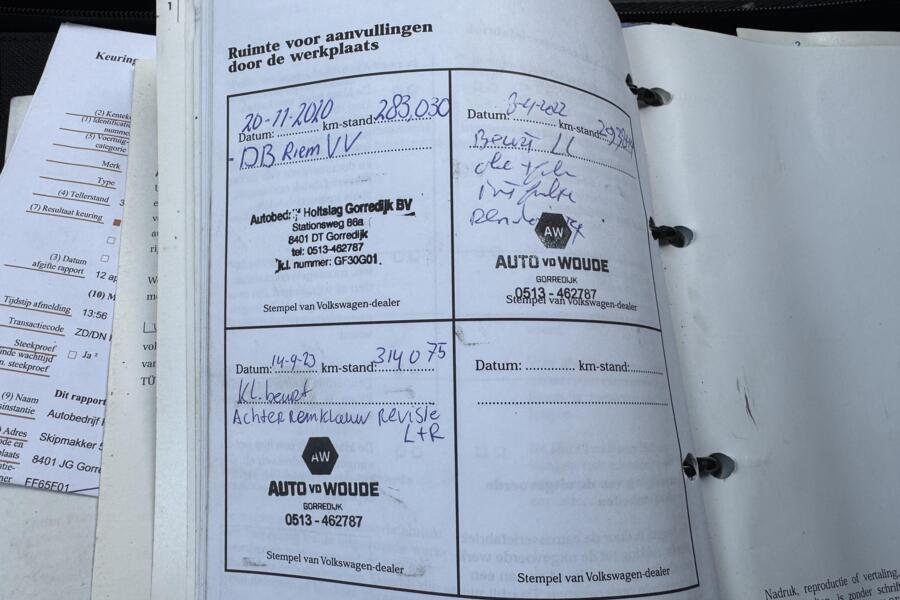 1
Ruimte voor aanvullingen
door de werkplaats
20-11-2020 283,030
Datum: ............ km-stand:............
DB Riem VV
Autobedrijf Holtslag Gorredijk BV
Stationsweg 86a
8401 DT Gorredijk
tel: 0513-462787
k.i. nummer: GF30G01.
Stempel van Volkswagen-dealer
Datum: ............ km-stand:
Beurt
AW
AUTO VD WOUDE
GORREDIJK
0513 - 462787
Stempel van Volkswagen-dealer
Datum: 14-9-23 km-stand: 314075
KL. beurt
Achter remklauw Revisie
L+R
AW
AUTO VD WOUDE
GORREDIJK
0513 - 462787
Stempel van Volkswagen-dealer
Datum: ............ km-stand:............
Stempel van Volkswagen-dealer
Keuring
(2) Kenteke
(1) Identificati
nummer
(5) Voertuig-
categorie
Merk
Type
(4) Tellerstand 3
(7) Resultaat keuring
(3) Datum
afgifte rapport 12 ap
(10) M
Tijdstip afmelding 13:56
Transactiecode ZD/DN
Steekproef Ja
inde wachttijd
n. steekproef
(9) Naam Dit rapport
instantie Autobedrijf
Adres Skipmakker
ode en
plaats 8401 JG Gorre
ntie-
mer FF65E01
Nadruk, reproductie of vertaling,
is zonder schrif